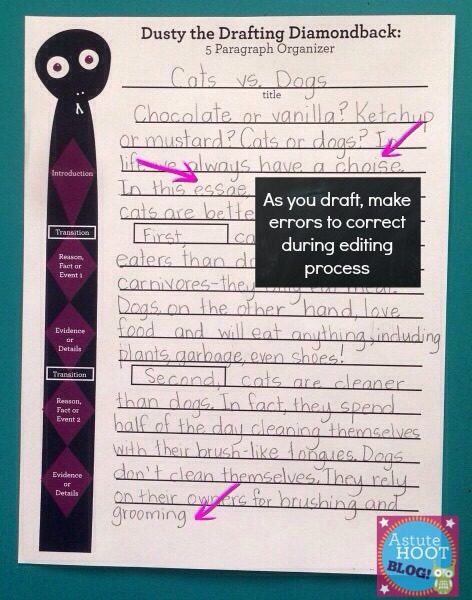 Dusty the Drafting Diamondback:
5 Paragraph Organizer
Cats vs. Dogs
title
Chocolate or vanilla? Ketchup
or mustard? Cats or dogs? In
life we always have a choise.
In this essae,
cats are bette
As you draft, make
errors to correct
during editing
process
First, ca
eaters than do
carnivores-they only eat meat.
Dogs, on the other hand, love
food and will eat anything, including
plants, garbage, even shoes!
Second, cats are cleaner
than dogs. In fact, they spend
half of the day cleaning themselves
with their brush-like tongues. Dogs
don't clean themselves. They rely
on their owners for brushing and
grooming
Introduction
Transition
Reason,
Fact or
Event 1
Evidence
or
Details
Transition
Reason,
Fact or
Event 2
Evidence
or
Details
Astute
HOOT
BLOG!